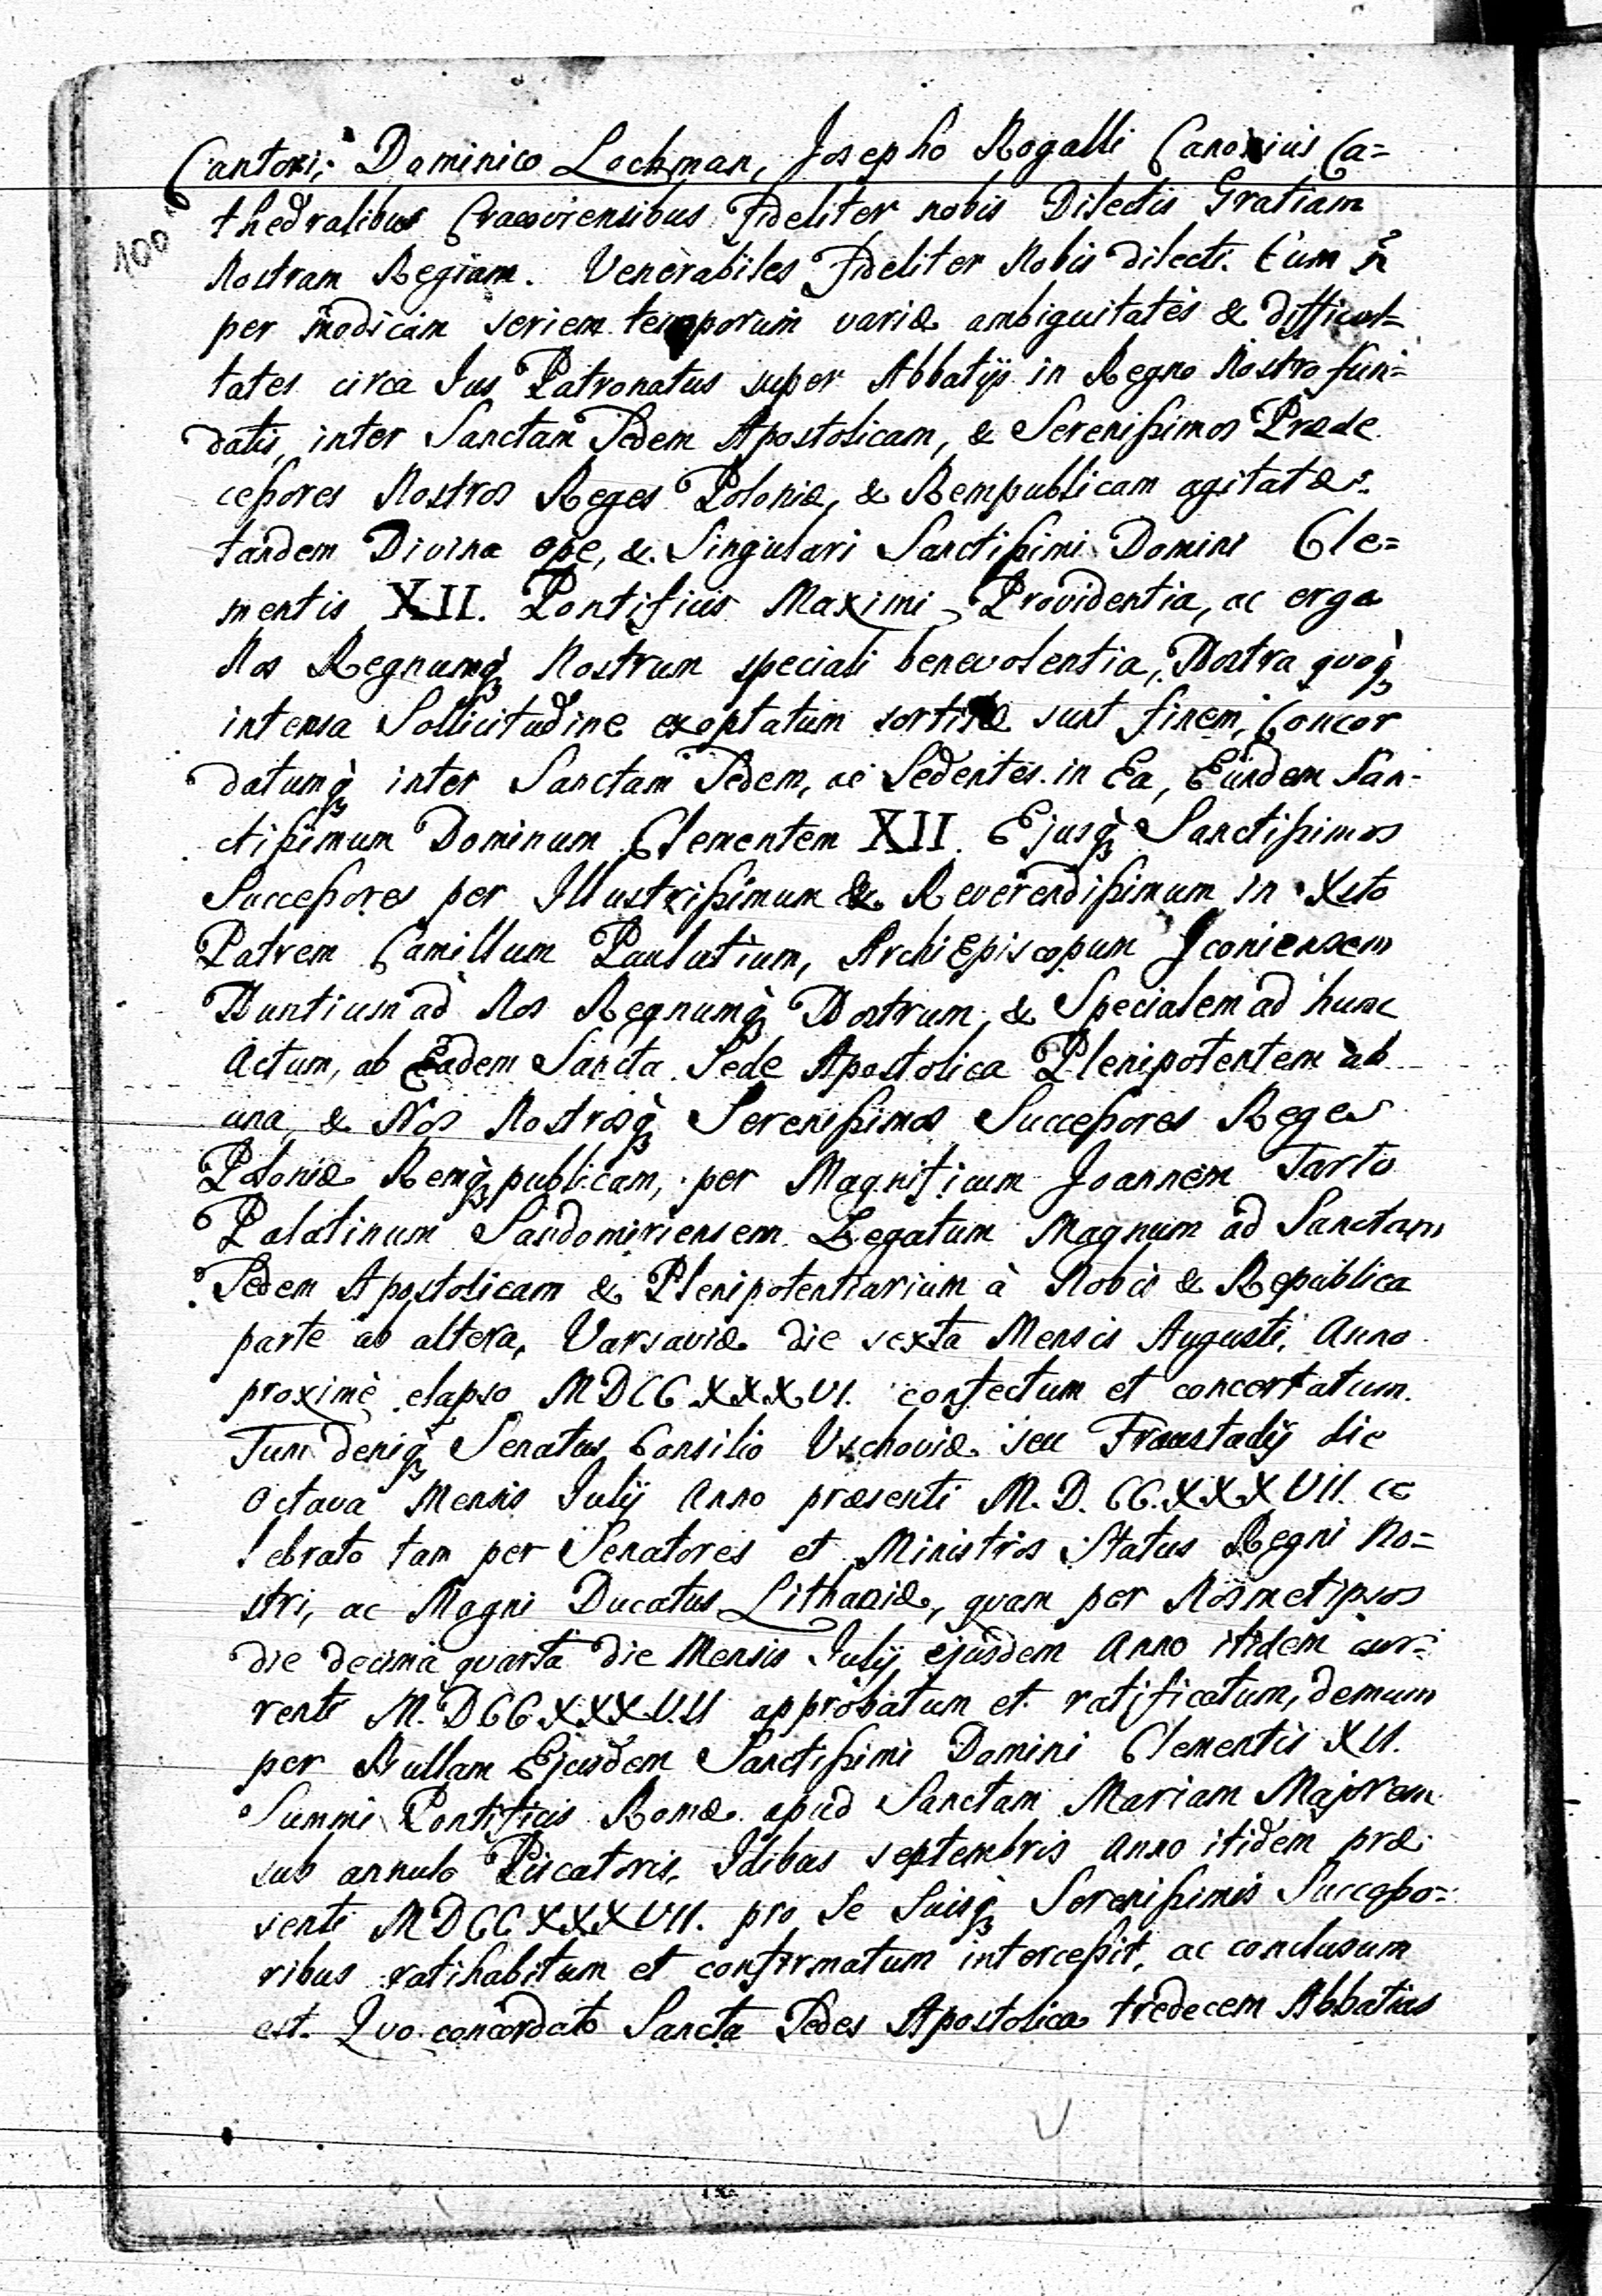 Cantori, Dominico Lochman, Josepho Rogalli Canonicis Ca=
thedralibus Cracoviensibus Fideliter nobis Dilectis Gratiam
100
Nostram Regiam. Venerabiles Fideliter Nobis dilecti. Cum ñ
per modicam seriem temporum variæ ambiguitates & difficul=
tates circa Jus Patronatus super Abbatijs in Regno Nostro fun=
datis, inter Sanctam Sedem Apostolicam, & Serenißimos Præde
ceßores Nostros Reges Poloniæ, & Rempublicam agitatæ
tandem Divina ope, & Singulari Sanctißimi Domini Cle=
mentis XII. Pontificis Maximi Providentia, ac erga
Nos Regnumq̃ Nostrum speciali benevolentia, Nostra quoq̃
intensa Sollicitudine exoptatum sortitæ sunt finem, Concor
datumq̃ inter Sanctam Sedem, ac Sedentes in Ea, Eundem San-
ctißimum Dominum Clementem XII. Ejusq̃ Sanctißimos
Succeßores per Illustrißimum & Reverendißimum in Xsto
Patrem Camillum Paulutium, ArchiEpiscopum Iconiensem
Nuntium ad Nos Regnumq̃ Nostrum, & Specialem ad hunc
Actum, ab Eadem Sancta Sede Apostolica Plenipotentem ab
una, & Nos Nostrosq̃ Serenißimos Succeßores Reges
Poloniæ Remq̃publicam, per Magnificum Joannem Tarło
Palatinum Sandomiriensem Legatum Magnum ad Sanctam
Sedem Apostolicam & Plenipotentiarium à Nobis & Republica
parte ab altera, Varsaviæ die sexta Mensis Augusti, Anno
proximè elapso MDCCXXXVI. confectum et concertatum.
Tum deniq̃ Senatus Consilio Vschoviæ seu Fraustadij die
Octava Mensis Julij Anno præsenti M.D.CC.XXXVII. ce
lebrato tam per Senatores et Ministros Status Regni No=
stri, ac Magni Ducatus Lithaniæ, quam per Nosmetipsos
die decima quarta die Mensis Julij ejusdem Anno itidem cur=
renti M.DCCXXXVII approbatum et ratificatum, demum
per Bullam Ejusdem Sanctißimi Domini Clementis XII.
Summi Pontificis Romæ apud Sanctam Mariam Majorem
sub annulo Piscatoris, Idibus septembris Anno itidem præ
senti MDCCXXXVII. pro Se Suisq̃ Serenißimis Succeßo=
ribus ratihabitum et confirmatum interceßit, ac conclusum
est. Quo concordato Sancta Sedes Apostolica tredecem Abbatias